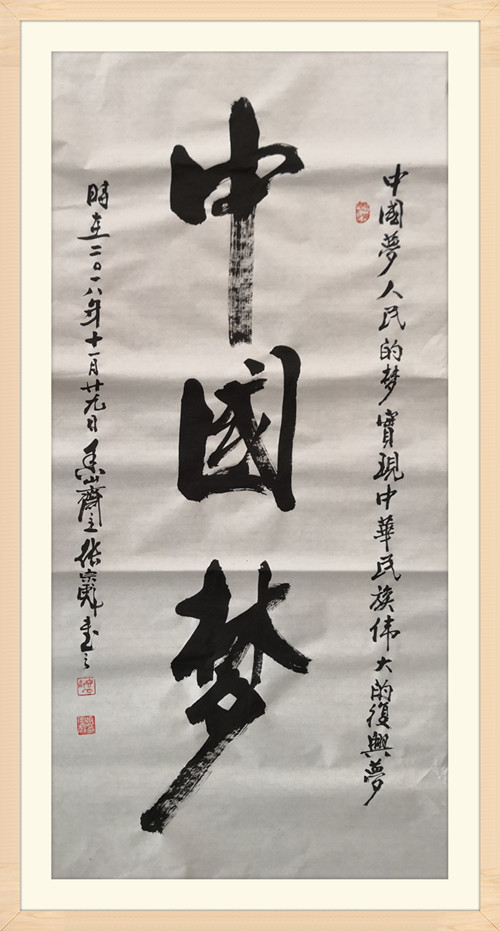 中國夢人民的梦實現中華民族伟大的復興夢
中國梦
時在二〇一八年十一月廿九日
山齋主张
書之